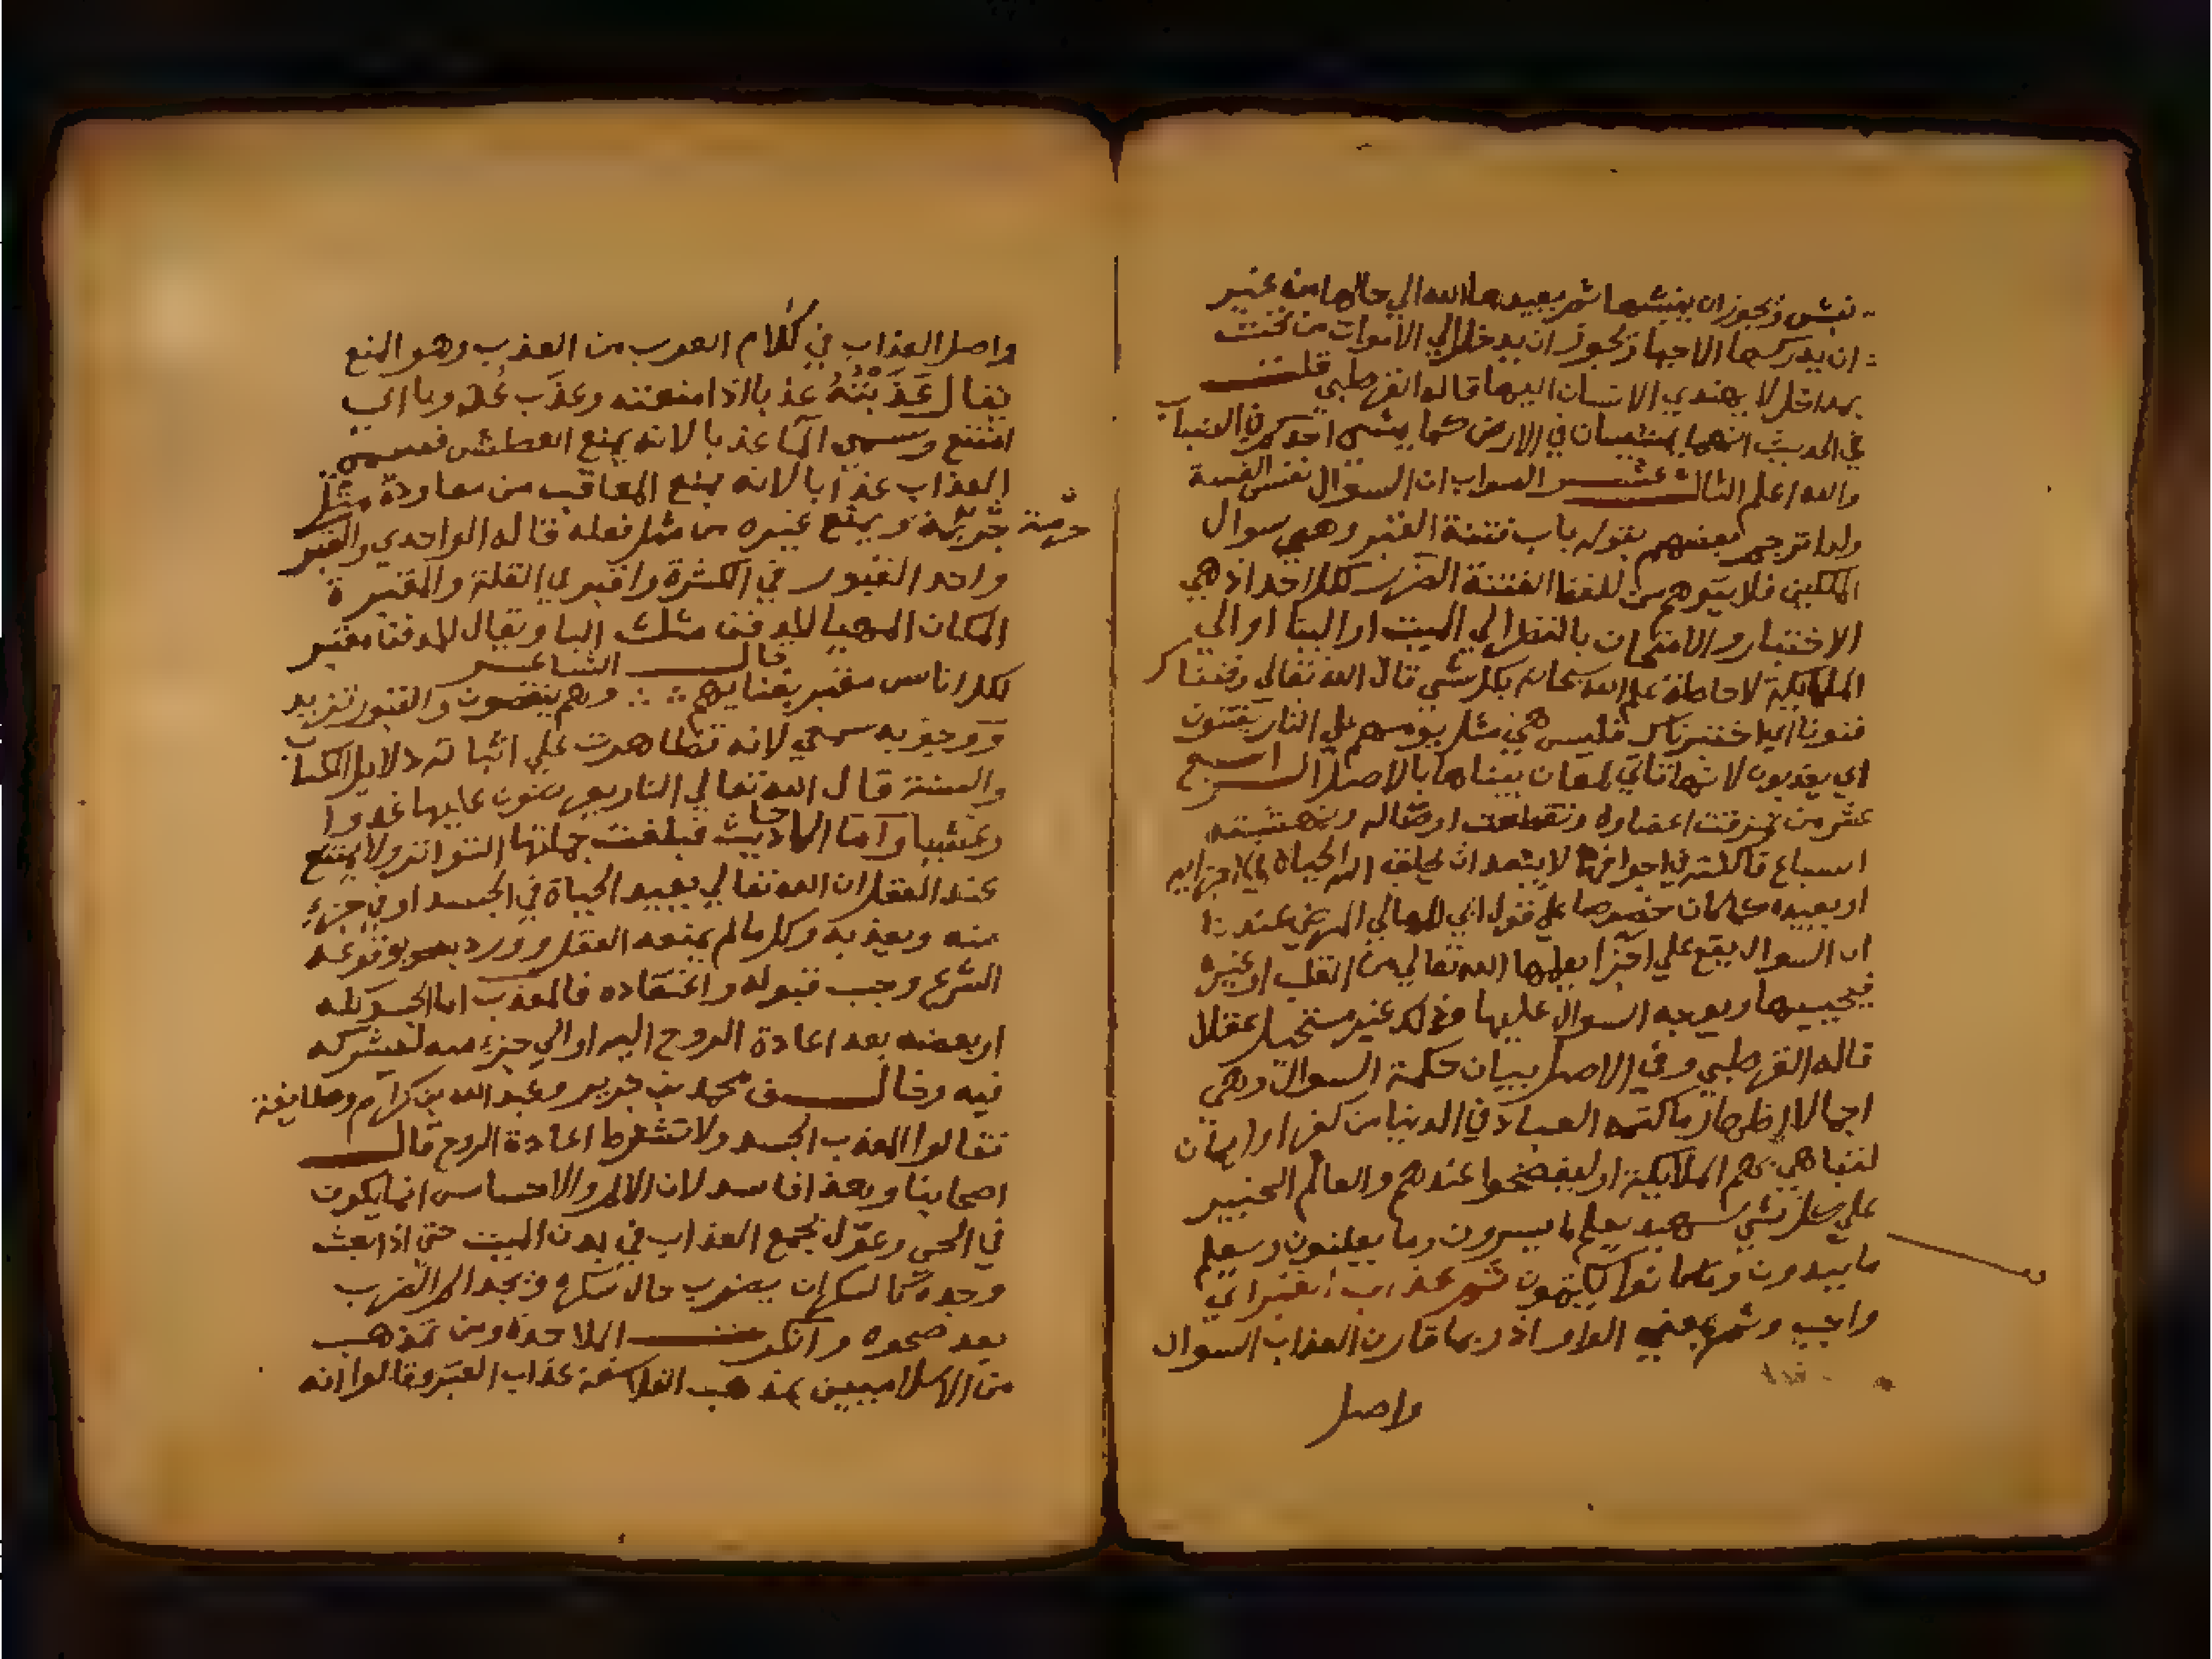 نبش ويجوز ان ينبشها ثم يعيدها الله الي حالها من غير
ان يدركها الاحيا ويجوز ان يدخلا الي الاموات من تحت
بمداخل لا يهتدي الانسان اليها قاله القرطبي قلت
في الحديث انهما يمشيان في الارض كما يمشي احدكم في الضباب
والله اعلم الثالث عشر الصواب ان السوال نفس الفتنة
ولذا ترجم بعضهم بقوله باب فتنة القبر وهي سوال
الملكين فلا يتوهم من لفظ الفتنة الضرر لكل احد اذ هي
الاختبار والامتحان بالنظر الي الميت او الينا او الي
الملايكة لاحاطة علم الله سبحانه بكل شي قال الله تعالي وفتناك
فتونا اي اختبرناك فليس هي مثل يوم هم علي النار يفتنون
اي يعذبون لانها تاتي لمعان بيناها بالاصل الرابع
عشر من تمزقت اعضاوه وتقطعت اوصاله ونهشته
السباع فاكلته في اجوافها لا يبعد ان يخلق الله الحياة في اجزايه
او يعيده كما كان خصوصا علي قول ابي المعالي المرضي عندنا
ان السوال يقع علي اجزا يعلمها الله تعالي من القلب او غيره
فيحييها ويوجه السوال عليها وذلك غير مستحيل عقلا
قاله القرطبي وفي الاصل بيان حكمة السوال وهي
اجمالا اظهار ما كتمه العباد في الدنيا من كفر او ايمان
لتباهي بهم الملايكة او ليفضحوا عندهم والعالم الخبير
علي كل شي شهيد يعلم ما يسرون وما يعلنون ويعلم
ما يبدون وما كانوا يكتمون ثم عذاب القبر اي
واجب وثم بمعني الواو اذ ربما قارن العذاب السوال
واصل
واصل العذاب في كلام العرب من العذب وهو المنع
يقال عَذَبْتُهُ عذبا اذا منعته وعذب عذوبا اي
امتنع وسمي الما عذبا لانه يمنع العطش فسمي
العذاب عذابا لانه يمنع المعاقب من معاودة مثل
جريمة ويمنع غيره من مثل فعله قاله الواحدي والقبر
واحد القبور في الكثرة واقبر في القلة والمقبرة
المكان المهيا للدفن مثلث البا ويقال للمدفن مقبر
قال الشاعر
لكل اناس مقبر بفنايهم ∴ ∴ وهم ينقصون والقبور تزيد
ووجوبه سمعي لانه تظاهرت علي اثباته دلايل الكتاب
والسنة قال الله تعالي النار يعرضون عليها غدوا
وعشيا واما الاحاديث فبلغت جملتها التواتر ولا يمتنع
عند العقل ان الله تعالي يعيد الحياة في الجسد او في جزء
منه ويعذبه وكل ما لم يمنعه العقل وورد بوقوعه
الشرع وجب قبوله واعتقاده فالمعذب اما الجسد كله
او بعضه بعد اعادة الروح اليه او الي جزء منه ليشركه
فيه وخالف محمد بن جرير وعبد الله بن كرام وطايفة
فقالوا المعذب الجسد ولا تشترط اعادة الروح قال
اصحابنا وهذا فاسد لان الالم والاحساس انما يكون
في الحي وقول يجمع العذاب في بدن الميت حتي اذا بعث
وجده كالسكران يضرب حال سكره ويجد الم الضرب
بعد صحوه وانكرت الملاحدة ومن تمذهب
من الاسلاميين بمذهب الفلاسفة عذاب القبر وقالوا انه